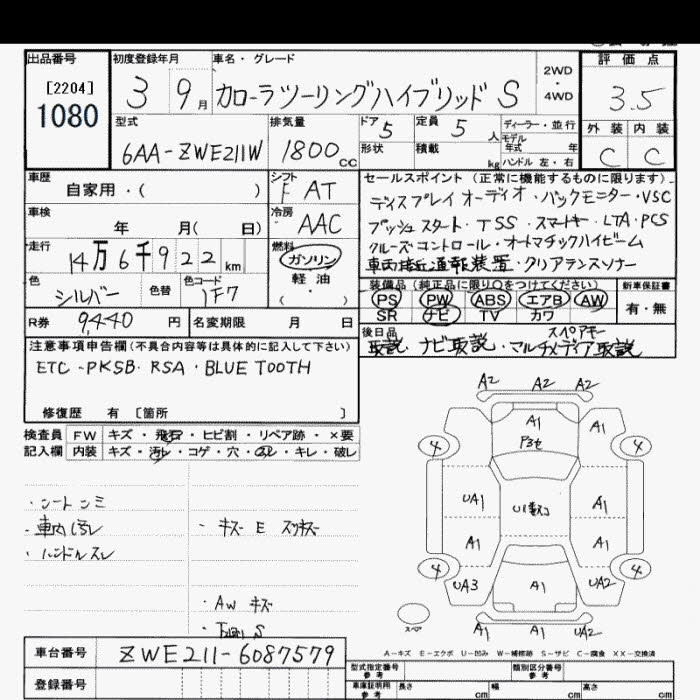 出品番号 初度登録年月 車名・グレード 評価点
[2204] 1080 3 9月 カローラツーリングハイブリッド S 2WD・4WD 3.5
型式 排気量 ドア 5 定員 5人 ディーラー・並行 外装 内装
6AA-ZWE211W 1800cc 形状 積載 kg モデル年式 年 ハンドル 左・右 C C
車歴 自家用・( ) シフト F AT セールスポイント (正常に機能するものに限ります)
ディスプレイ オーディオ・バックモニター・VSC
車検 年 月( 日) 冷房 AAC プッシュスタート・TSS・スマートキー・LTA・PCS
走行 14万6千922km 燃料 ガソリン・軽油・( ) クルーズコントロール・オートマチックハイビーム
車両接近通報装置・クリアランスソナー
色 シルバー 色替 色コード 1F7 装備品 (純正品に限り○をつけてください) 新車保証書
PS PW ABS エアB AW 有・無
SR ナビ TV カワ
R券 9,440円 名変期限 月 日 後日品 スペアキー
取説・ナビ取説・マルチメディア取説
注意事項申告欄(不具合内容等は具体的に記入して下さい)
ETC・PKSB・RSA・BLUETOOTH
修復歴 有 [箇所 ]
検査員 FW キズ・飛石・ヒビ割・リペア跡・×要
記入欄 内装 キズ・汚レ・コゲ・穴・スレ・キレ・破レ
A2 A2 A2
A1
4 A1 4
・シートシミ UA1 A1
・車内汚レ ・キズ E
・ハンドルスレ A1 A1
4 4
UA3 A1 UA2
・AW キズ
スペア A1 A1 UA2
A-キズ E-エクボ U-凹み W-補修跡 S-サビ C-腐食 XX-交換済
車台番号 ZWE211-6087579
型式指定番号 参考 類別区分番号 参考
登録番号 車庫証明用 参考 長さ cm 幅 cm 高さ cm